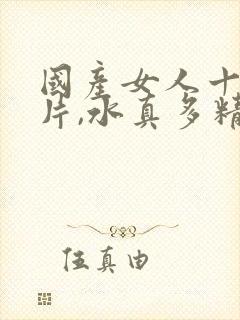 國產女人十
片,水真多精
伍真由